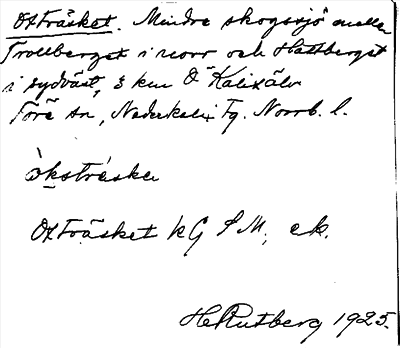 Oxträsket. Mindre skogssjö mellan
Trollberget i norr och Hattberget
i sydväst, 3 km Ö Kalixälv
Töre sn, Nederkalix Tg. Norrb. l.
òkstráskə
Oxträsket kG S M, ek.
H Rutberg 1925.